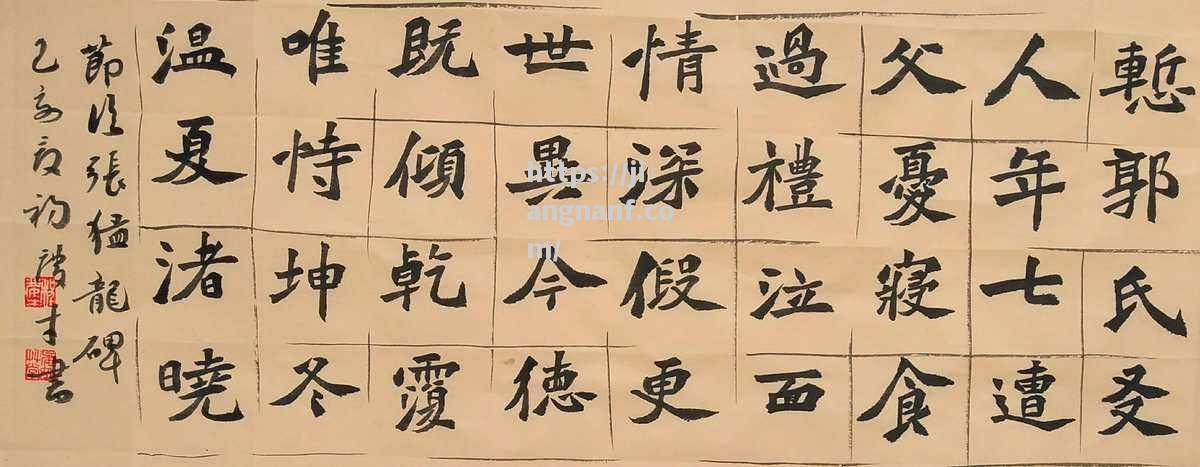 慙郭氏
人年七遭
父憂寢食
過禮泣面
情深假更
世異今德
既傾乾覆
唯恃坤冬
温夏渚曉
節临張猛龍碑
己亥夏初才書
https://ji
angnanf.co
m/